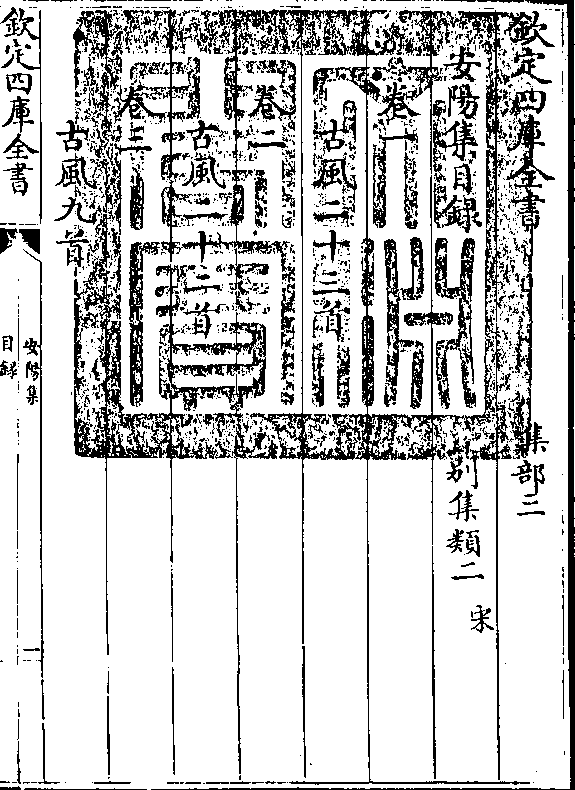 欽定四庫全書 集部二
安陽集目録 别集類二 宋
卷一
古風二十三首
卷二
古風二十二首
卷三
古風九首
欽定四庫全書
安陽集
目録
一